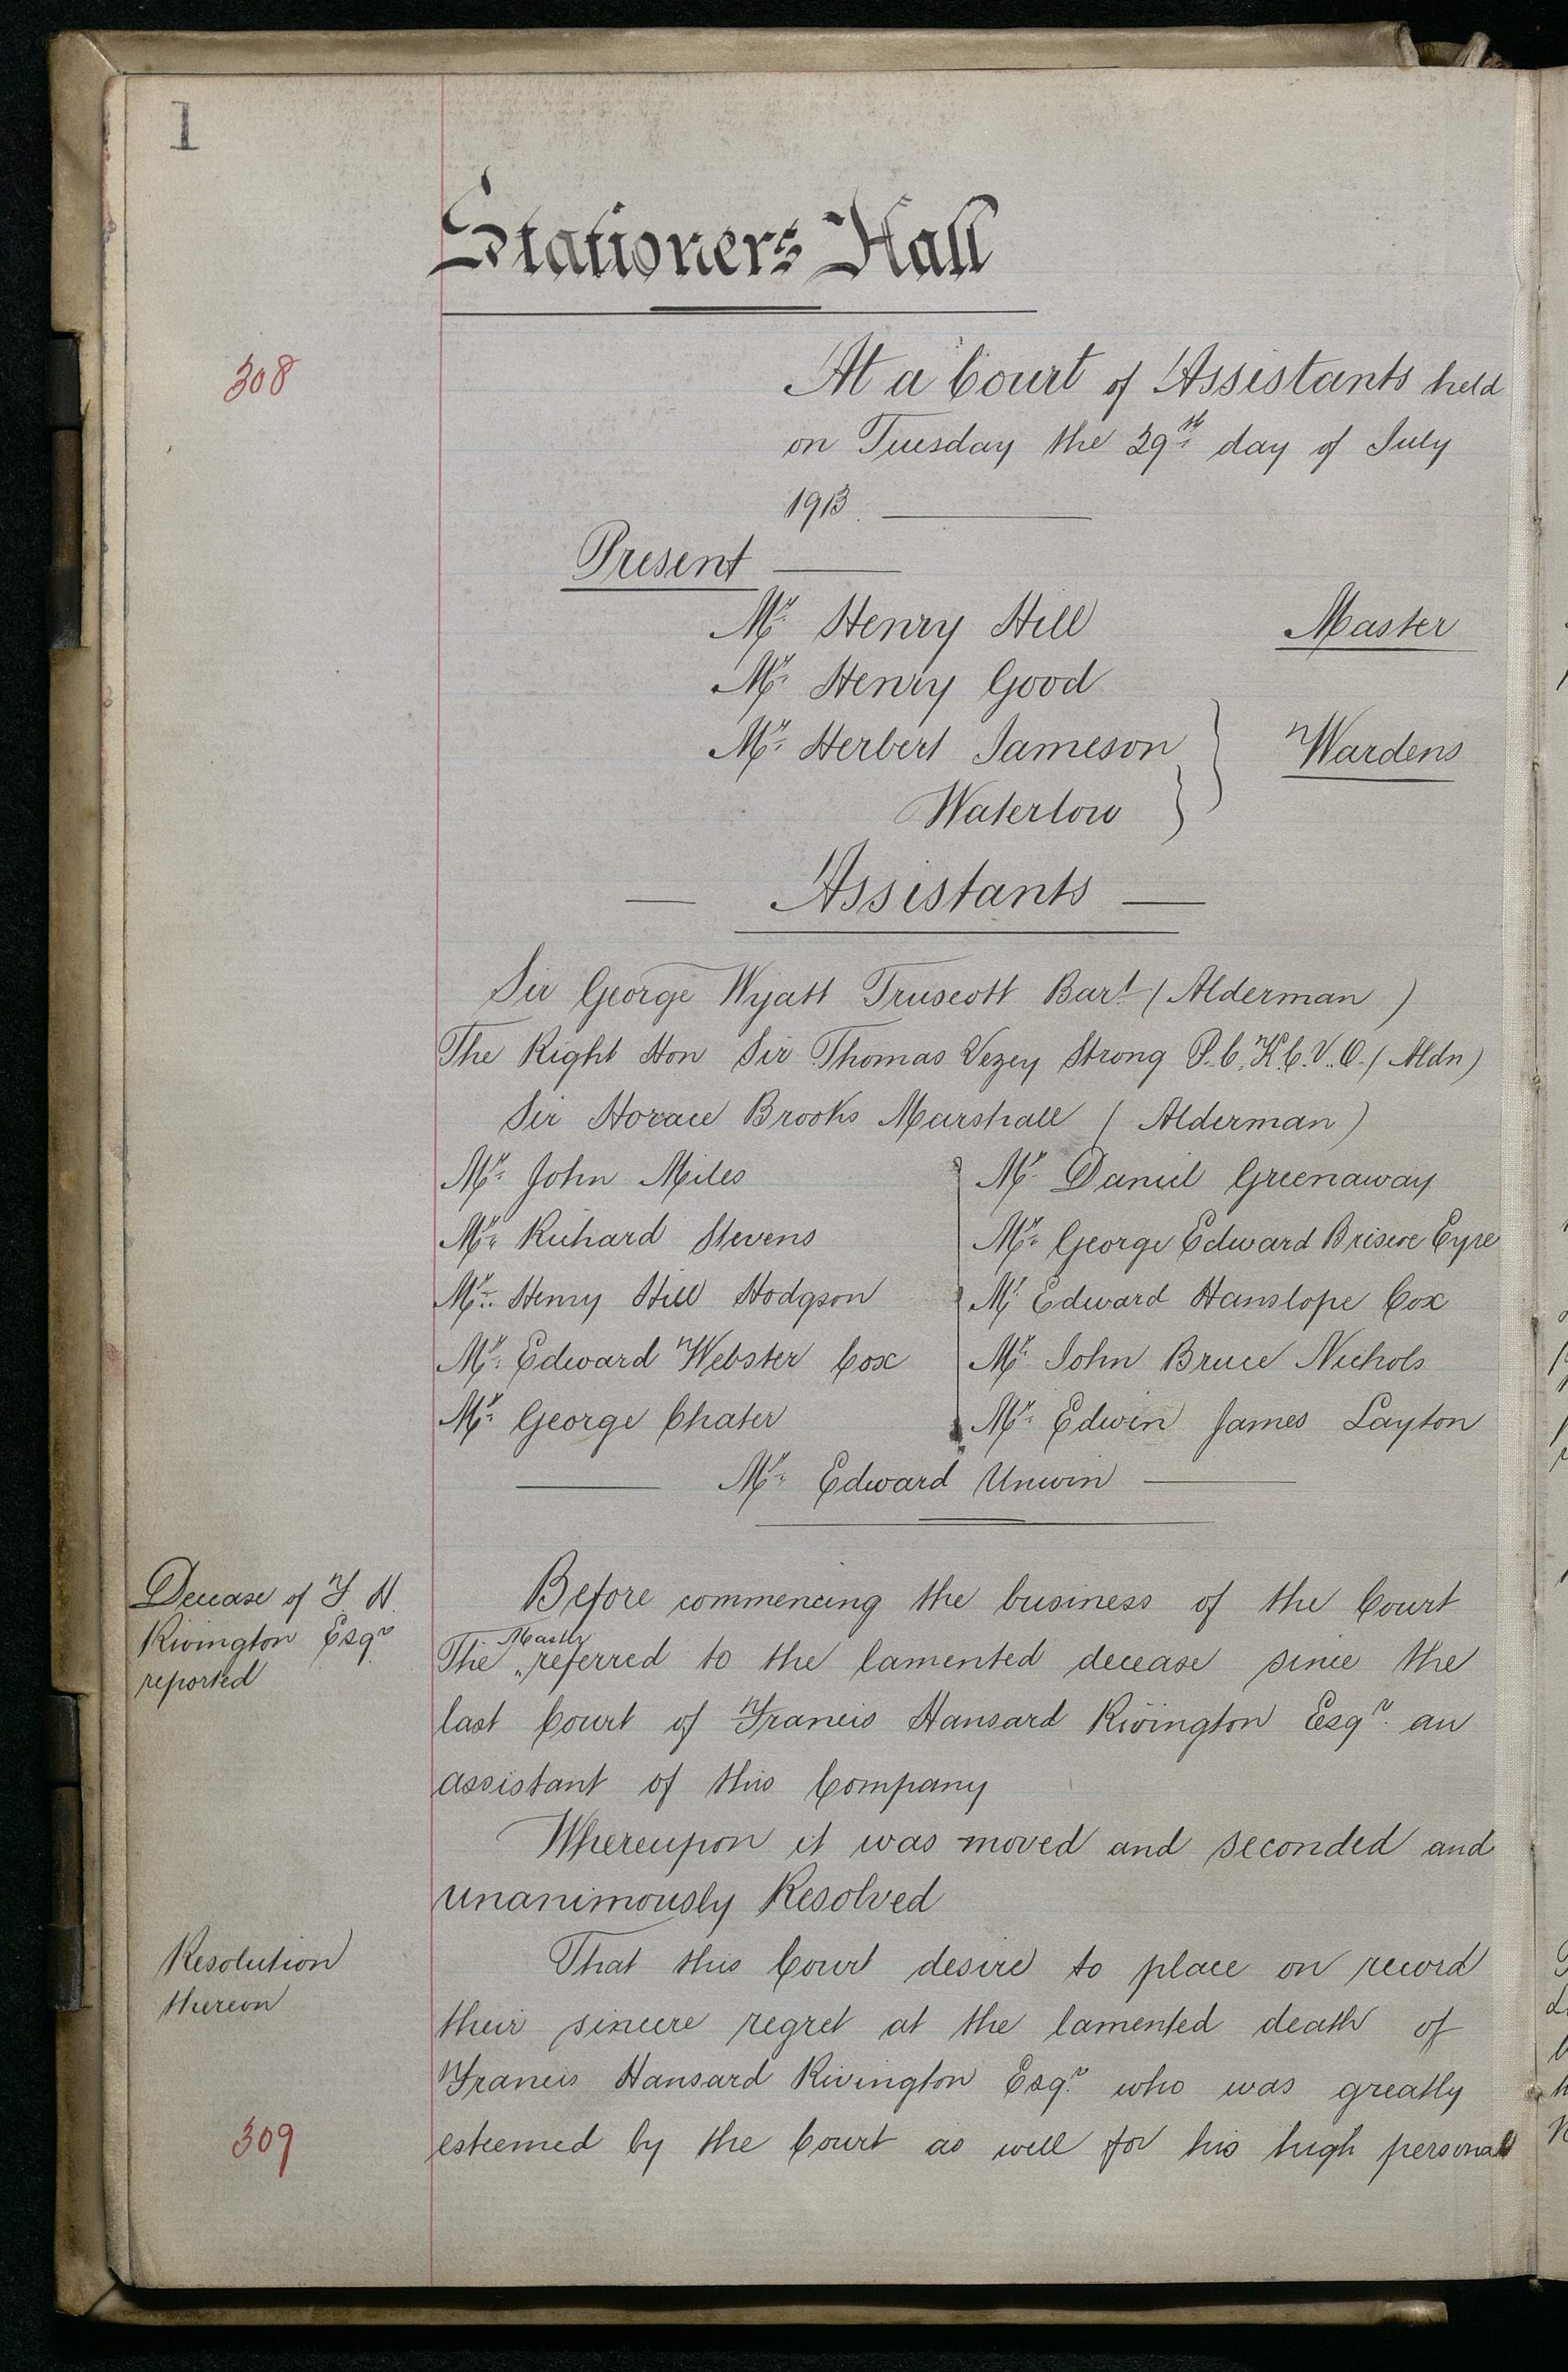 1
Stationers Hall
308
At a Court of Assistants held
on Tuesday the 29th day of July
1913.
Present
Mr Henry Hill Master
Mr Henry Good
Mr Herbert Jameson Wardens
Waterlow
Assistants
Sir George Wyatt Truscott Bart (Alderman)
The Right Hon Sir Thomas Vezey Strong P.C. K.C.V.O. (Aldn)
Sir Horace Brooks Marshall (Alderman)
Mr John Miles Mr Daniel Greenaway
Mr Richard Stevens Mr George Edward Briscoe Eyre
Mr Henry Hill Hodgson Mr Edward Hanslope Cox
Mr Edward Webster Cox Mr John Bruce Nichols
Mr George Chater Mr Edwin James Layton
Mr Edward Unwin
Decease of F H
Rivington Esqr
reported
Before commencing the business of the Court
The Master referred to the lamented decease since the
last Court of Francis Hansard Rivington Esqr an
assistant of this Company
Whereupon it was moved and seconded and
unanimously Resolved
Resolution
thereon
That this Court desire to place on record
their sincere regret at the lamented death of
Francis Hansard Rivington Esqr who was greatly
309
esteemed by the Court as well for his high personal